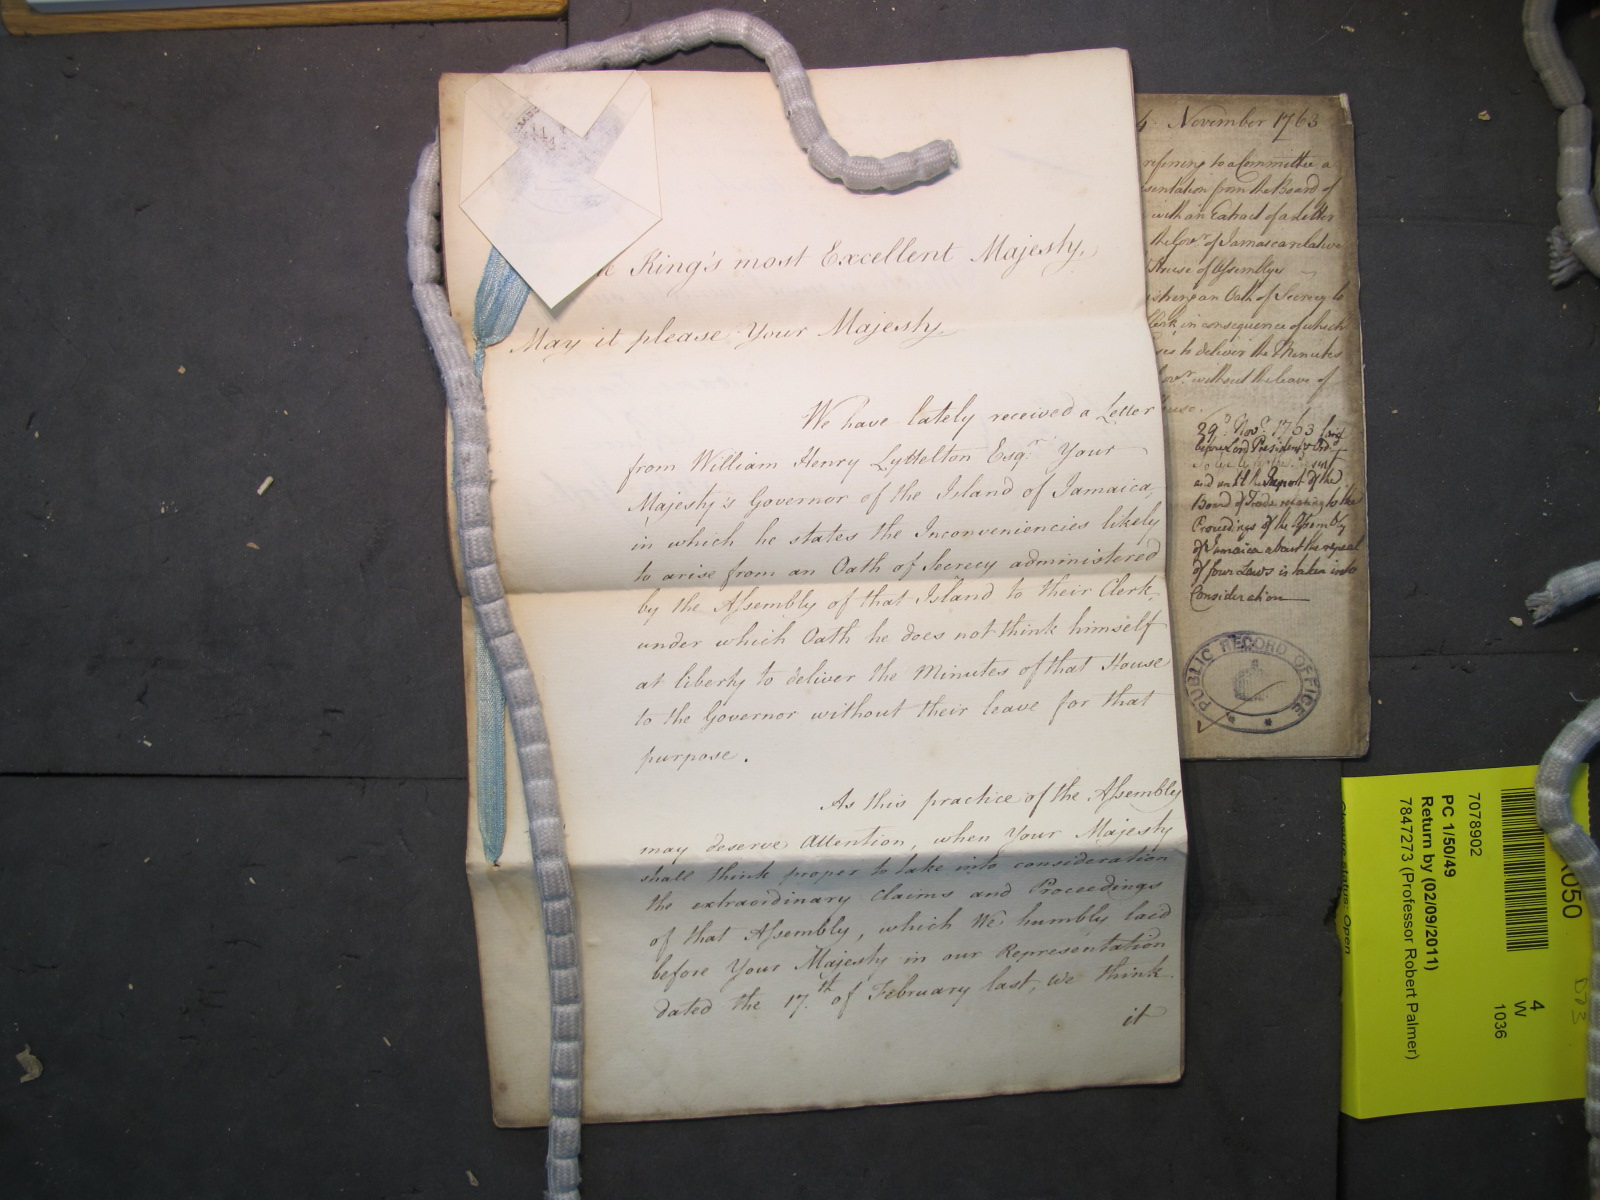 King's most Excellent Majesty,
May it please Your Majesty
We have lately received a Letter
from William Henry Lyttelton Esqr. Your
Majesty's Governor of the Island of Jamaica,
in which he states the Inconveniencies likely
to arise from an Oath of Secrecy administered
by the Assembly of that Island to their Clerk,
under which Oath he does not think himself
at liberty to deliver the Minutes of that House
to the Governor without their leave for that
purpose.
As this practice of the Assembly
may deserve Attention, when Your Majesty
shall think proper to take into consideration
the extraordinary Claims and Proceedings
of that Assembly, which We humbly laid
before Your Majesty in our Representation
dated the 17.th of February last, we think
it
November 1763
referring to a Committee a
from the Board of
with an Extract of a Letter
the Govr. of Jamaica relative
House of Assemblys
an Oath of Secrecy to
in consequence of which
to deliver the Minutes
Govr. without the leave of
29.th Novr. 1763
Lord President
and until the Report of the
Board of Trade relating to the
Proceedings of the Assembly
of Jamaica about the repeal
of four Laws is taken into
Consideration
PUBLIC RECORD OFFICE
7078902
PC 1/50/49
Return by (02/09/2011)
7847273 (Professor Robert Palmer)
4
W
1036
Closure status: Open